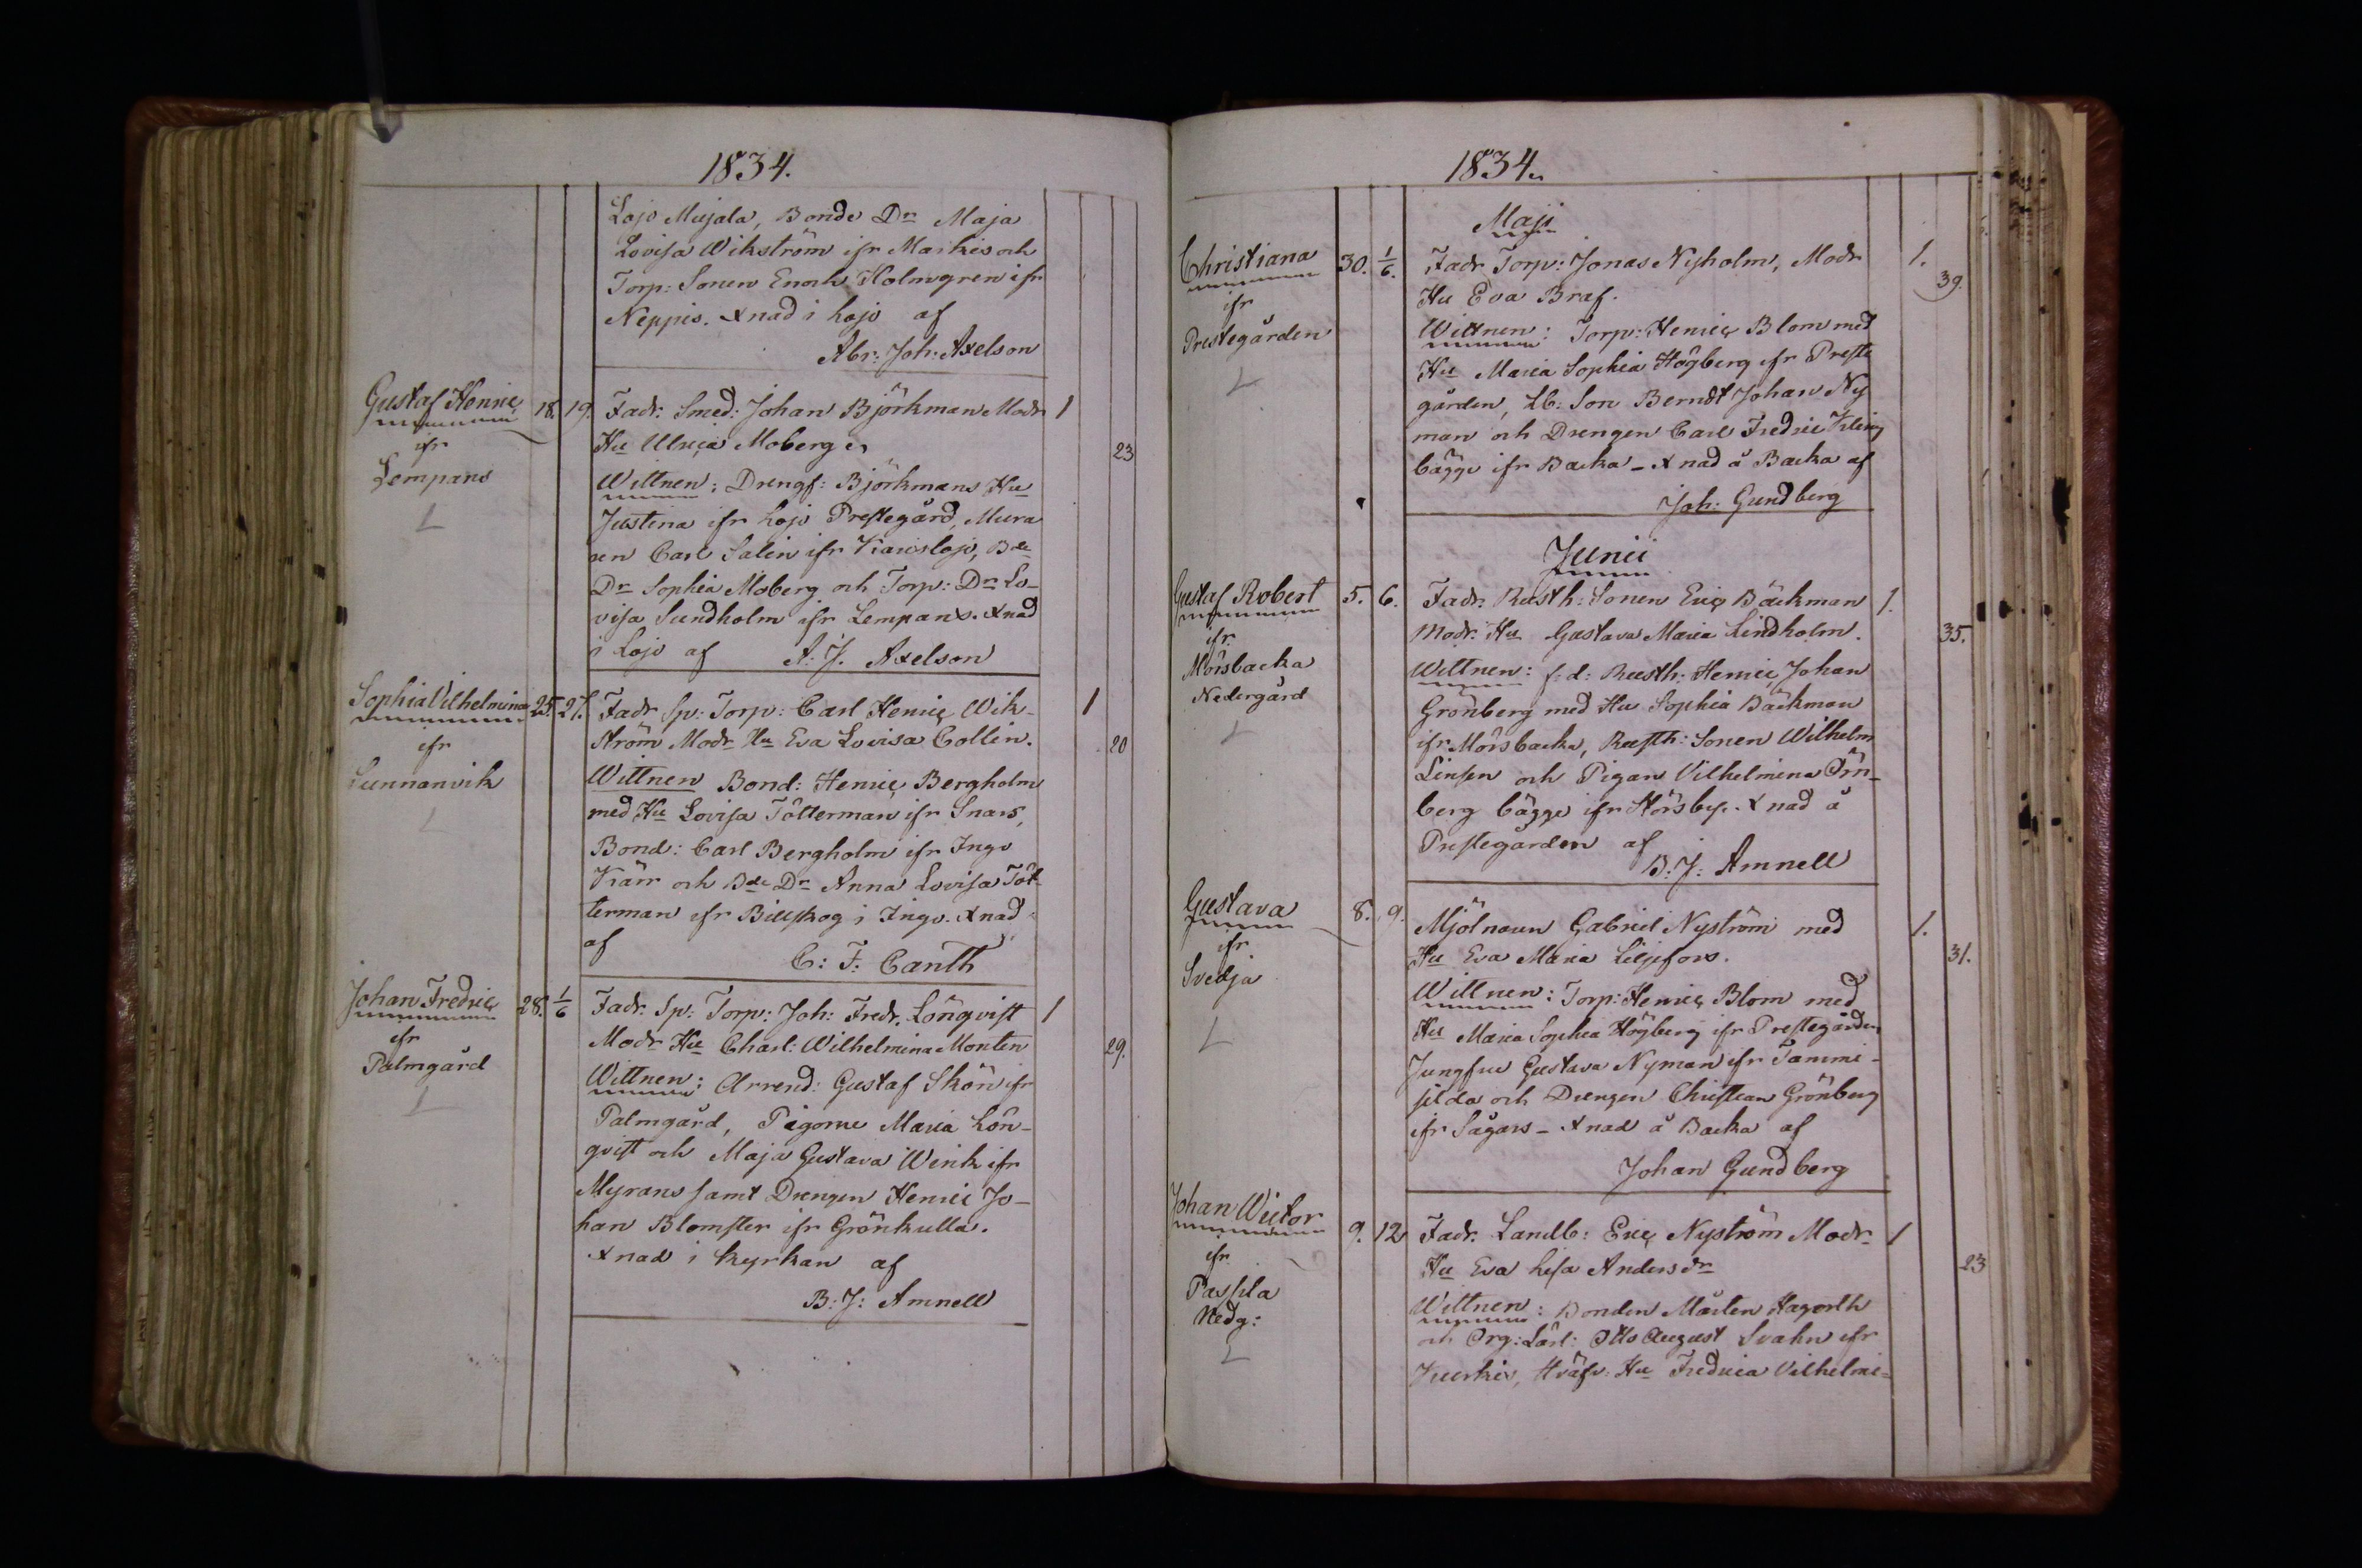 1834.
Lojo Mujala, Bonde Dr Maja
Lovisa Wikström ifr Markis och
Torp: Sonen Enoch Holmgren ifr
Neppis. Xnad i Lojo af
Abr: Joh: Axelson
Gustaf Henric
ifr
Lempans
18. 19.
Fadr: Smed: Johan Björkman Modr 1
Hu Ulrica Moberg
23
Wittnen: Drengf: Björkmans Hu
Justina ifr Lojo Prestegård, Mura
ren Carl Salin ifr Karislojo, Bde
Dr Sophia Moberg och Torp: Dr Lo-
visa Sundholm ifr Lempans. Xnad
i Lojo af A: J. Axelson
Sophia Vilhelmina
ifr
Sunnanvik
25. 27.
Fadr Sp: Torp: Carl Henric Wik- 1
ström Modr Hu Eva Lovisa Collin.
20
Wittnen Bond: Henric Bergholm
med Hu Lovisa Tötterman ifr Snars,
Bond: Carl Bergholm ifr Ingo
Kärr och Bde Dr Anna Lovisa Töt-
terman ifr Billskog i Ingo. Xnad
af C: F: Canth
Johan Fredric
ifr
Palmgård
28. 1/6
Fadr: Sp: Torp: Joh: Fredr. Lönqvist 1
Modr Hu Charl: Wilhelmina Monten
29.
Wittnen: Arrend: Gustaf Skön ifr
Palmgård, Pigorne Maria Lön-
qvist och Maja Gustava Wink ifr
Myrans samt Drengen Henric Jo-
han Blomster ifr Grönkulla.
Xnad i Kyrkan af
B: J: Amnell
1834.
Maji
Christiana
ifr
Prestegården
30. 1/6.
Fadr Torp: Jonas Nyholm, Modr 1.
Hu Eva Braf.
39.
Wittnen: Torp: Henric Blom med
Hu Maria Sophia Högberg ifr Preste
gården, Lb: Son Berndt Johan Ny
man och Drengen Carl Fredric Kling
bägge ifr Backa - Xnad å Backa af
Joh: Gundberg
Junii
Gustaf Robert
ifr
Mörsbacka
Nedergård
5. 6.
Fadr: Rusth: Sonen Eric Bäckman 1.
Modr: Hu Gustava Maria Lindholm.
35.
Wittnen: f: d: Rusth: Henric Johan
Grönberg med Hu Sophia Bäckman
ifr Mörsbacka, Rusth: Sonen Wilhelm
Linsen och Pigan Vilhelmina Örn-
berg bägge ifr Störsby. Xnad å
Prestegården af
B: J: Amnell
Gustava
ifr
Svedja
8. 9.
Mjölnaren Gabriel Nyström med 1.
Hu Eva Maria Liljefors.
31.
Wittnen: Torp: Henric Blom med
Hu Maria Sophia Högberg ifr Prestegården
Jungfru Gustava Nyman ifr Tammi-
silda och Drengen Christian Grönberg
ifr Sågars - Xnad å Backa af
Johan Gundberg
Johan Wictor
ifr
Pashla
Nedg:
9. 12
Fadr. Landb: Eric Nyström Modr. 1
Hu Eva Lisa Anders dr
23
Wittnen: Bonden Mårten Hagerth
och Org: Lärl: Otto August Svahn ifr
Kurkis, Hu Fredrica Vilhelmi=